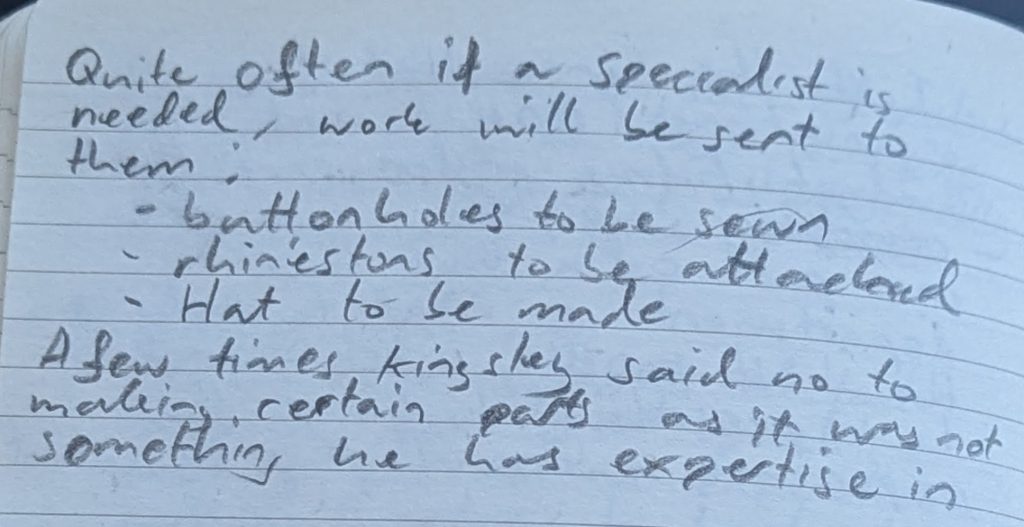 Quite often if a specialist is
needed, work will be sent to
them:
- buttonholes to be sewn
- rhinestons to be attached
- Hat to be made
A few times Kingsley said no to
making certain parts as it was not
something he has expertise in